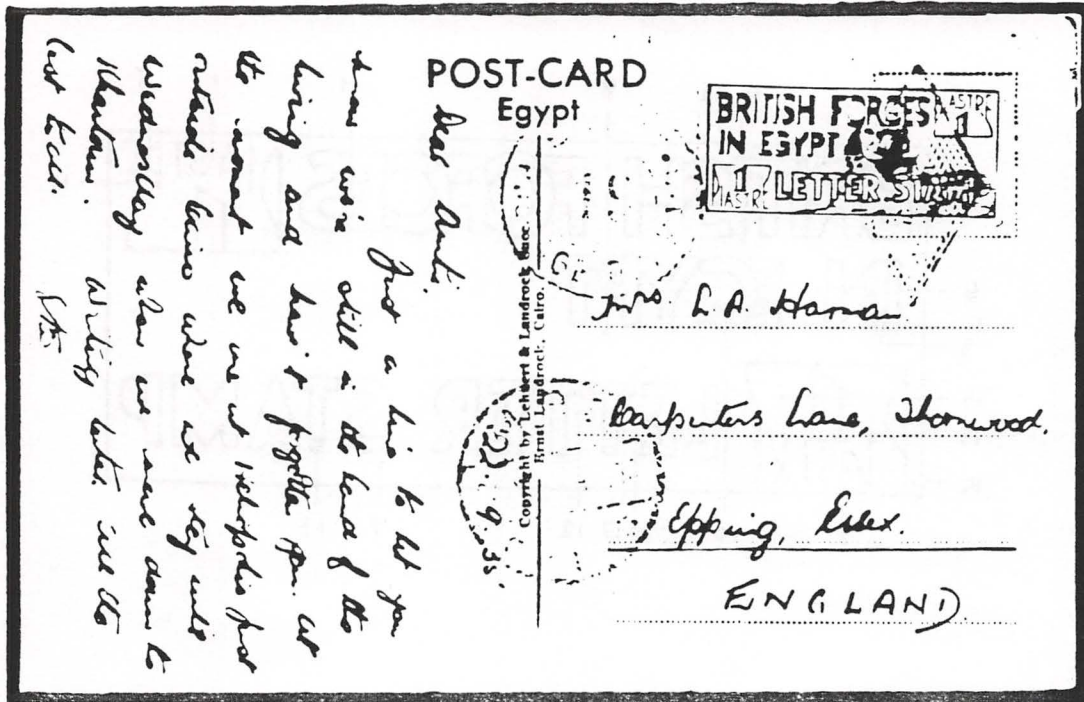 POST-CARD
Egypt
BRITISH FORCES
IN EGYPT
PIASTRE
1
1
PIASTRE
LETTER STAMP
Copyright by Lehnert & Landrock Succ.
Ernst Landrock, Cairo.
Mrs. L.A. Haman.
Carpenters Lane, Thornwood,
Epping, Essex.
ENGLAND
Dear Auntie,
Just a line to let you
know we're still in the land of the
living and haven't forgotten you. At
the moment we are at Heliopolis just
outside Cairo where we stay until
Wednesday when we move down to
Khartoum. Writing later. All the
best to all.
22. 9. 35.